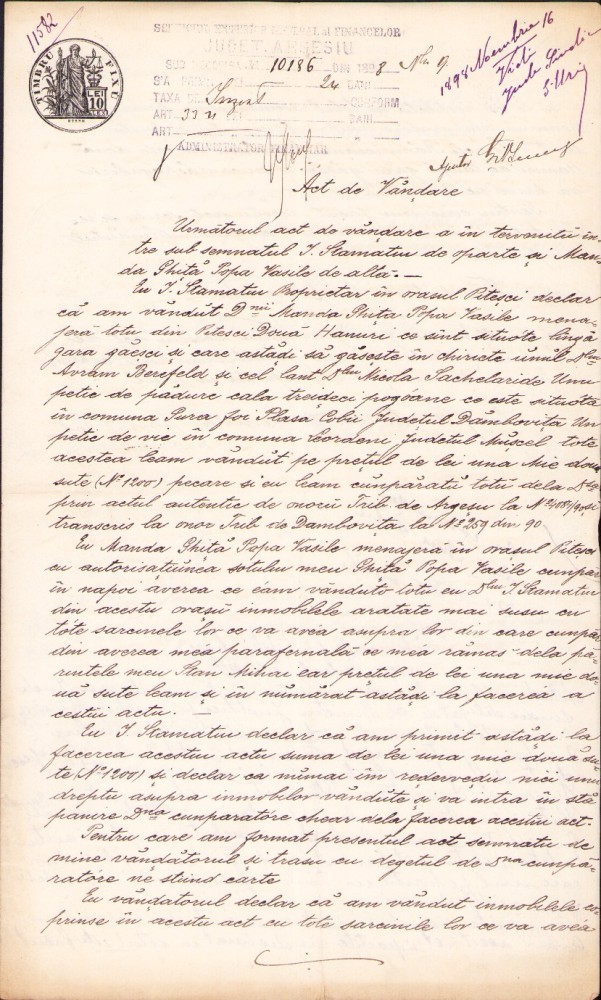 11582
TIMBRU FIXU
LEI 10
SERVICIUL EXTERIOR GENERAL al FINANCELOR
JUDET. ARGESIU
10186 DIN 1898 Nbr 9
S'A BANI
TAXA DE CONFORM
ART. 33 BANI
ART
ADMINISTRATOR FINANCIAR
1898 Noembrie 16
Act de Vândare
Următorul act de vândare a în tervenitu în-
tre sub semnatul I. Stamatiu de oparte și Man-
da Ghiță Popa Vasile de alta. —
Eu I. Stamatiu Proprietar în orasul Pitesci declar
că am vândut Dnii Manda Ghița Popa Vasile mena-
jeră totu din Pitesci Două Hanuri ce sînt situate lîngă
gara găesci și care astădi să găseste în chirete unul Dlui
Avram Berefeld și cel lant Dlui Nicola Sachelaride Unu
petic de pădure cala treideci pogoane ce este situată
în comuna foi Plasa Cobii Judetul Dâmbovița Un
petic de vie în comuna Leordeni Judetul Muscel tote
acestea leam vândut pe prețul de lei una Mie două
sute (No 1200) pecare si eu leam cumpărată totu dela
prin actul autentic de onocu Trib de Argesu la No și
transcris la onor Trib de Dambovița la No 259 din 90.
Eu Manda Ghită Popa Vasile menajeră în orasul Pitesci
cu autorisatiunea sotului meu Ghită Popa Vasile cumpar
în napoi averea ce eam vânduto totu eu Dlui I. Stamatiu
din acestu orașu inmobilele aratate mai susu cu
tote sarcinele lor ce va avéa asupra lor din care cumpăr
din averea méa parafernală ce mea rămas dela pă-
rintele meu Stan Mihai ear prețul de lei una mie do-
uă sute leam și în numărat astădi la facerea a
cestui actu. —
Eu I. Stamatiu declar că am primit astădi la
facerea acestui actu suma de lei una mie două su-
te (No 1200) și declar ca numai îm redervedu nici unu
dreptu asupra inmobilor vândute și va intra în stă
panire Dna cumparatóre chear dela facerea acestui act.
Pentru care am format presentul act semnatu de
mine vândătorul și trasu cu degetul de Dna cumpă-
ratóre ne stiind carte
Eu vândatorul declar că am vândut inmobilele co-
prinse în acestu act cu tote sarcinile lor ce va avéa